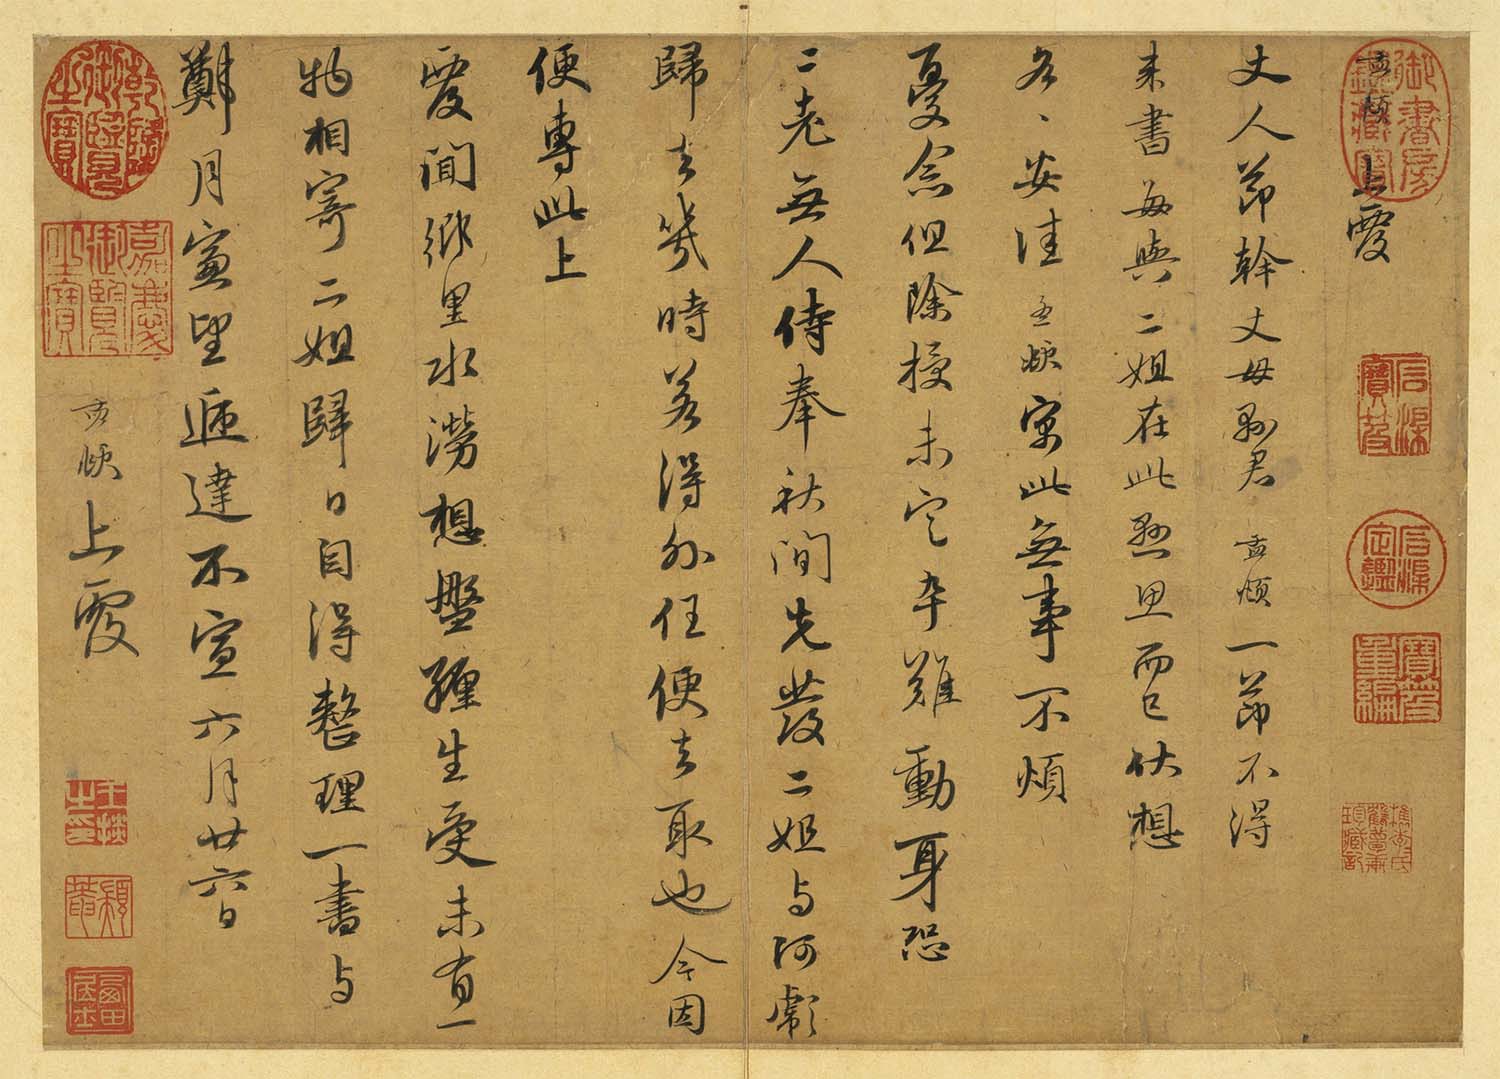 御書房鑑藏寶
孟頫上覆
石渠寶笈
石渠定鑑
寶笈重編
檇李李氏鶴夢軒珍藏記
丈人節幹丈母縣君孟頫一節不得
来書每與二姐在此懸思而已伏想
各、安佳孟頫寓此無事不煩
憂念但除授未定卒難動身恐
二老無人侍奉秋間先發二姐与阿彪
歸去幾時若得外任便去取也今因
便專此上
覆聞鄉里水澇想盤纏生受未有一
物相寄二姐歸日自得整理一書与
鄭月窗望遞達不宣六月廿六日
孟頫上覆
乾隆御覽之寶
嘉慶御覽之寶